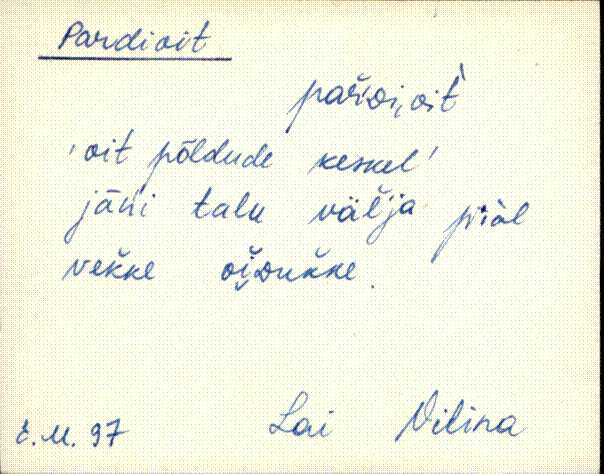 Pardioit
pař̀ᴅi‿oit̀
'oit põldude keskel'
jāńi talu väľja piàl
veǩke ošᴅuǩke.
E.M. 97 Lai Vilina